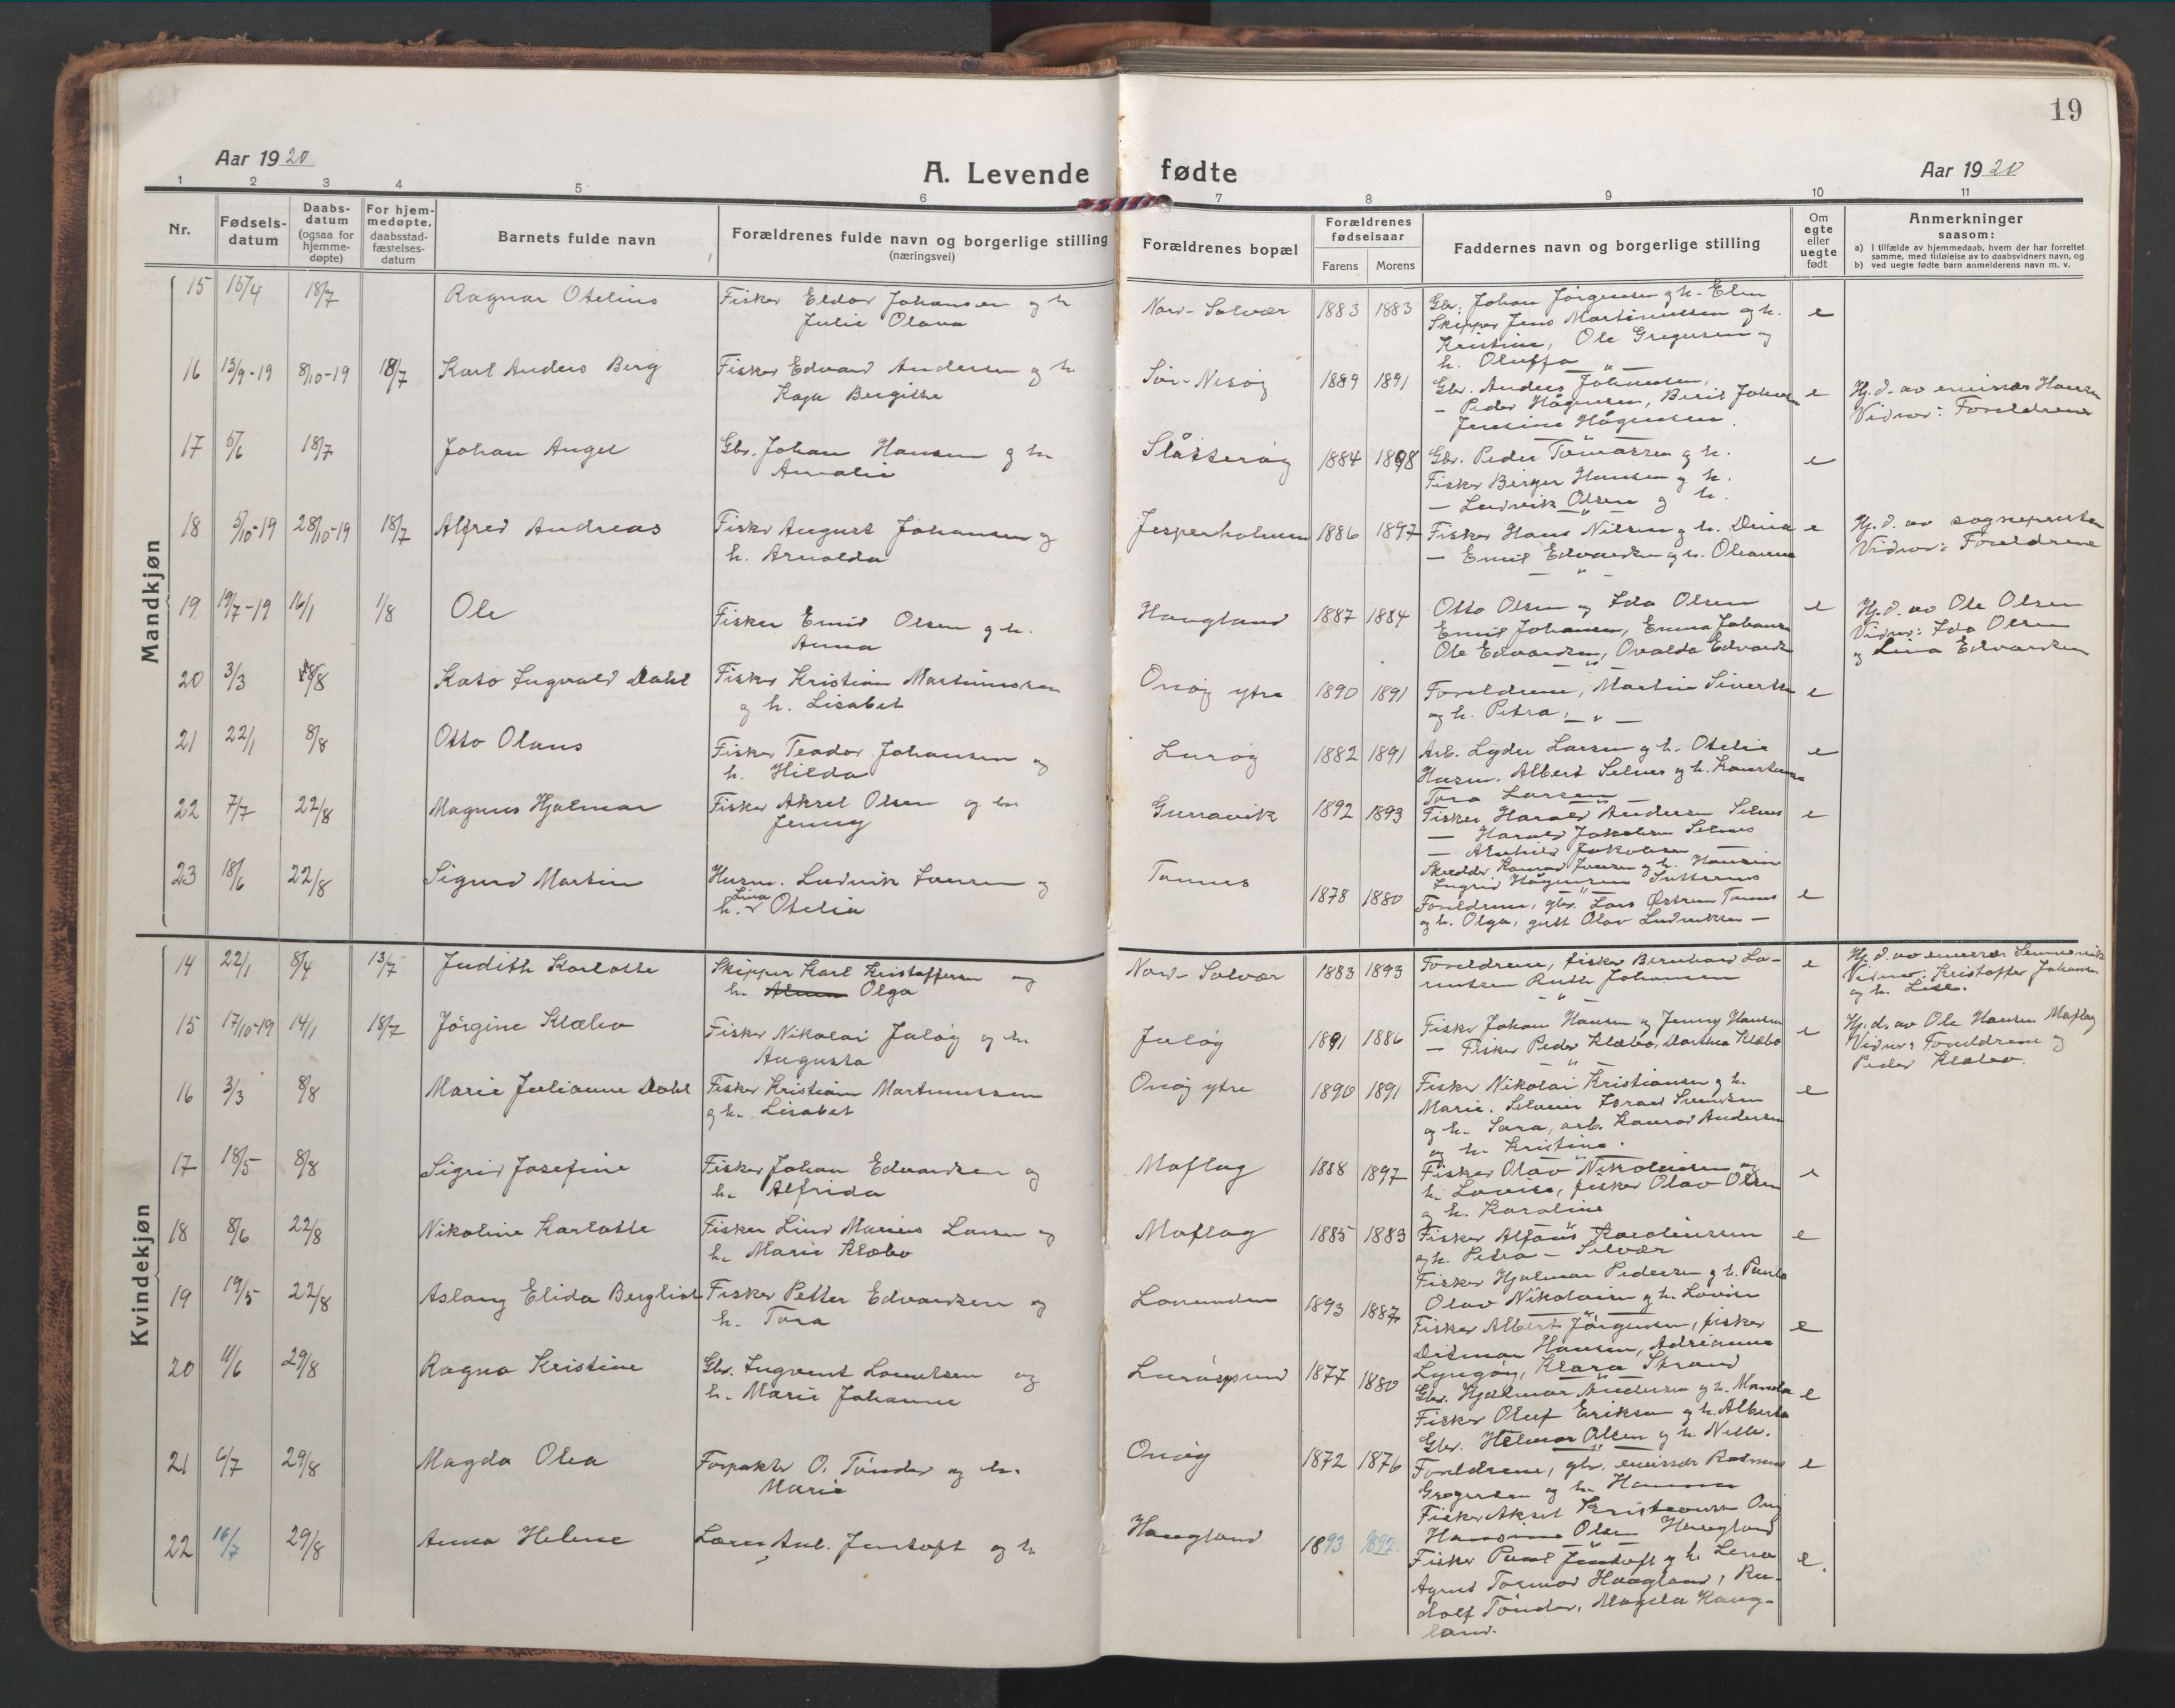 19
Aar 1920
A. Levende fødte
Aar 1920
1 2 3 4 5 6 7 8 9 10 11
Nr.
Fødsels-
datum
Daabs-
datum
(ogsaa for
hjemme-
døpte)
For hjem-
medøpte,
daabsstad-
fæstelses-
datum
Barnets fulde navn
Forældrenes fulde navn og borgerlige stilling
(næringsvei)
Forældrenes bopæl
Forældrenes
fødselsaar
Farens Morens
Faddernes navn og borgerlige stilling
Om
egte
eller
uegte
født
Anmerkninger
saasom:
a) i tilfælde av hjemmedaab, hvem der har forrettet
samme, med tilføielse av to daabsvidners navn, og
b) ved uegte fødte barn anmelderens navn m. v.
Mandkjøn
15 15/4 18/7 Ragnar Otelius
Fisker Eldor Johansen og h
Julie Olava
Nord-Solvær 1883 1883
Gbr. Johan Jörgensen og h. Elen
Skipper Jens Martinussen og h.
Kristine, Ole Gregersen og
h. Oluffa
e
16 13/9-19 8/10-19 18/7 Karl Anders Berg
Fisker Edvard Andersen og h.
Kaja Bergitte
Sör-Nesöy 1889 1891
Gbr. Anders Johansen,
- Peder Hågensen, Berit Johansen
Jensine Hågensen.
e
Hj.d. av emissær Hansen
Vidner: Foreldrene
17 5/6 18/7 Johan Angel
Gbr. Johan Hansen og h.
Amalie
Slåtteröy 1884 1898
Gbr. Peder Tomassen og h.
Fisker Birger Hansen og h.
- Ludvik Olsen og h.
e
18 5/10-19 28/10-19 18/7 Alfred Andreas
Fisker August Johansen og
h. Arnolda
Jesperholmen 1886 1897
Fisker Hans Nilsen og h. Dina
- Emil Edvardsen og h. Oleanna
e
Hj.d. av sognepresten
Vidner: Foreldrene
19 19/7-19 16/1 1/8 Ole
Fisker Emil Olsen og h.
Anna
Haugland 1887 1884
Otto Olsen og Ida Olsen
Emil Johansen, Emma Johansen
Ole Edvardsen, Ovalda Edvards
e
Hj.d. av Ole Olsen
Vidner: Ida Olsen
og Lina Edvardsen
20 3/3 8/8 Kato Ingvald Dahl
Fisker Kristian Martinussen
og h. Lisabet
Onöy ytre 1890 1891
Foreldrene, Martin Sivertsen
og h. Petra,
e
21 22/1 8/8 Otto Olaus
Fisker Teodor Johansen og
h. Hilda
Luröy 1882 1891
Arb. Lyder Larsen og h. Otelie
Husm. Albert Selnes og h. Konstanse
Tora Larsen
e
22 7/7 22/8 Magnus Hjalmar
Fisker Aksel Olsen og h.
Jenny
Gurravik 1892 1893
Fisker Harald Andersen Selnes
- Harald Jakobsen Selnes
- Jakobsen
Skredder Konrad Jensen og h. Hansine
Ingrid Hågensen
e
23 18/6 22/8 Sigurd Martin
Husm. Ludvik Iversen og
h. Lina Otelia
Tonnes 1878 1880
Foreldrene, gbr. Lars Tonnes
og h. Olga, gutt Olav Ludviksen -
e
Kvindekjøn
14 22/1 8/4 13/7 Judith Karlotte
Skipper Karl Kristoffersen og
h. Olga
Nord-Solvær 1883 1893
Foreldrene, fisker Bernhard Lo-
rentsen Ruth Johansen
e
Hj.d. av emissær
Vidner: Kristoffer Johansen
og h. Lise.
15 17/10-19 14/1 18/7 Jörgine Klæbo
Fisker Nikolai Julöy og h.
Augusta
Julöy 1891 1886
Fisker Johan Hansen og Jenny Hansen
- Fisker Peder Klæbo, Dorthea Klæbo
e
Hj.d. av Ole Hansen Moflag
Vidner: Foreldrene og
Peder Klæbo.
16 3/3 8/8 Marie Julianne Dahl
Fisker Kristian Martinussen
og h. Lisabet
Onöy ytre 1890 1891
Fisker Nikolai Kristiansen og h.
Marie. Israel Svendsen
og h. Sara, arb. Konrad Andersen
og h. Kristine.
e
17 18/5 8/8 Sigrid Josefine
Fisker Johan Edvardsen og
h. Alfrida
Moflag 1888 1897
Fisker Olav Nikolaisen og
h. Lovise, fisker Olav Olsen
og h. Karoline
e
18 8/6 22/8 Nikoline Karlotte
Fisker Lind Marius Larsen og
h. Marie Klæbo
Moflag 1885 1883
Fisker Alfons Karoliussen
og h. Petra - Selvær
Fisker Hjalmar Pedersen og h. Paula
Olav Nikolaisen og h. Lovise
e
19 19/5 22/8 Aslaug Elida Bergliot
Fisker Petter Edvardsen og
h. Tora
Lovunden 1893 1887
Fisker Albert Jörgensen, fisker
Ditmar Hansen, Adrianna
Lyngöy, Klara Strand
e
20 11/6 29/8 Ragna Kristine
Gbr. Ingvart Lorentsen og
h. Marie Johanne
Luröysund 1877 1880
Gbr. Hjalmar Andersen og h. Manda
Fisker Oluf Eriksen og h. Alberta
Gbr. Helmar Olsen og h. Nelle.
e
21 6/7 29/8 Magda Olea
Forpakter O. Tönder og h.
Marie
Onöy 1872 1876
Foreldrene, gbr. emissær Rasmus
Gregersen og h. Hanna
Fisker Aksel Kristensen Onöy
Hansine Olsen Haugland
e
22 16/7 29/8 Anna Helene
Lærer Anl. Jentoft og h
Haugland 1893 1892
Fisker Paul Jentoft og h. Lena
Agnes Tormod Haugland, Ru-
dolf Tönder, Magda Haug-
land.
e.